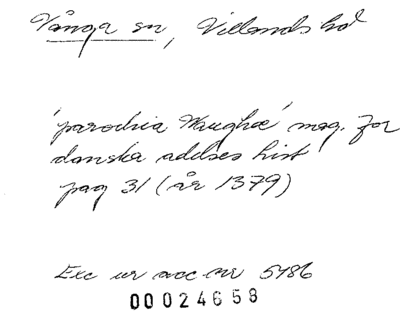 Vånga sn, Villands hd
'parochia Waughæ' mag. for
danska adelses hist
pag 31 (år 1379)
Exc ur acc nr 5486
00024658